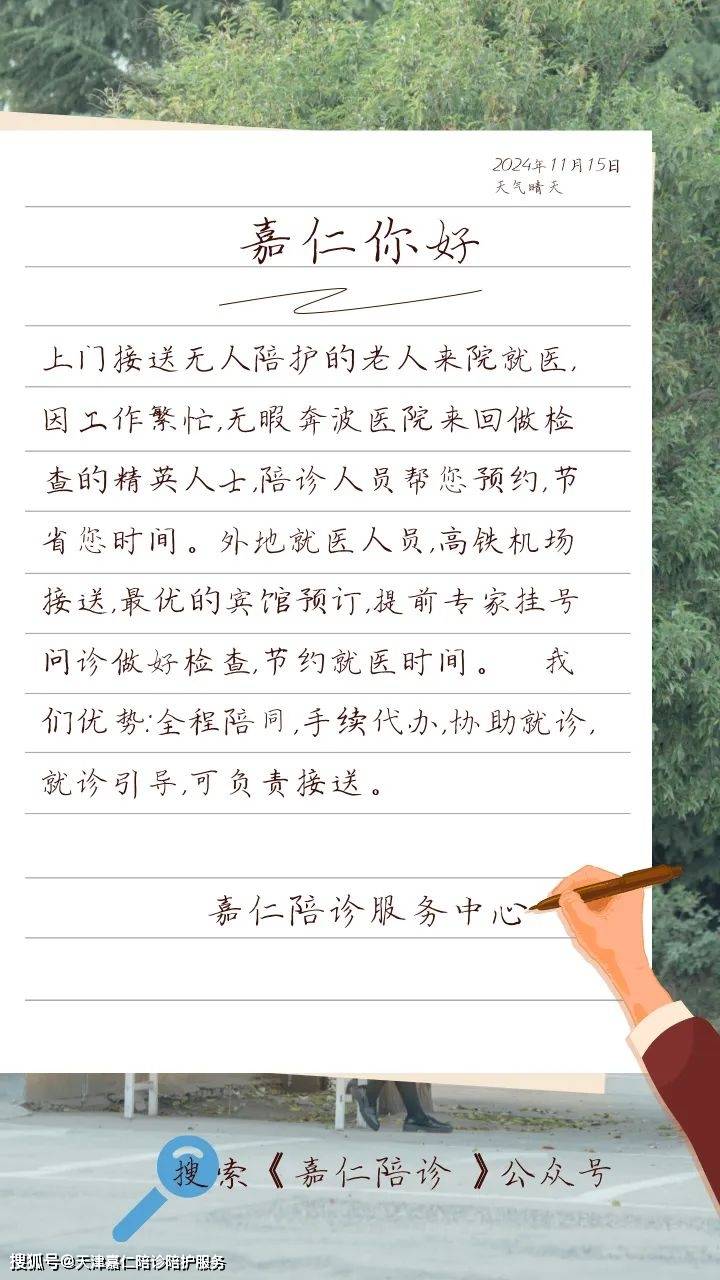 2024年11月15日
天气晴天
嘉仁你好
上门接送无人陪护的老人来院就医,
因工作繁忙,无暇奔波医院来回做检
查的精英人士,陪诊人员帮您预约,节
省您时间。外地就医人员,高铁机场
接送,最优的宾馆预订,提前专家挂号
问诊做好检查,节约就医时间。 我
们优势:全程陪同,手续代办,协助就诊,
就诊引导,可负责接送。
嘉仁陪诊服务中心
搜索《嘉仁陪诊》公众号
搜狐号@天津嘉仁陪诊陪护服务